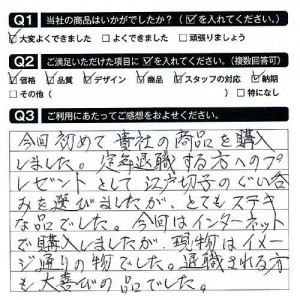 Q1 当社の商品はいかがでしたか？（☑を入れてください。）
☑大変よくできました □よくできました □頑張りましょう
Q2 ご満足いただけた項目に☑を入れてください。（複数回答可）
☑価格 ☑品質 ☑デザイン ☑商品 ☑スタッフの対応 ☑納期
□その他（ ） □特になし
Q3 ご利用にあたってご感想をおよせください。
今回初めて貴社の商品を購入
しました。定年退職する方へのプ
レゼントとして江戸切子のぐい呑
みを選びましたが、とてもステキ
な品でした。今回はインターネット
で購入しましたが、現物はイメー
ジ通りの物でした。退職される方
も大喜びの品でした。